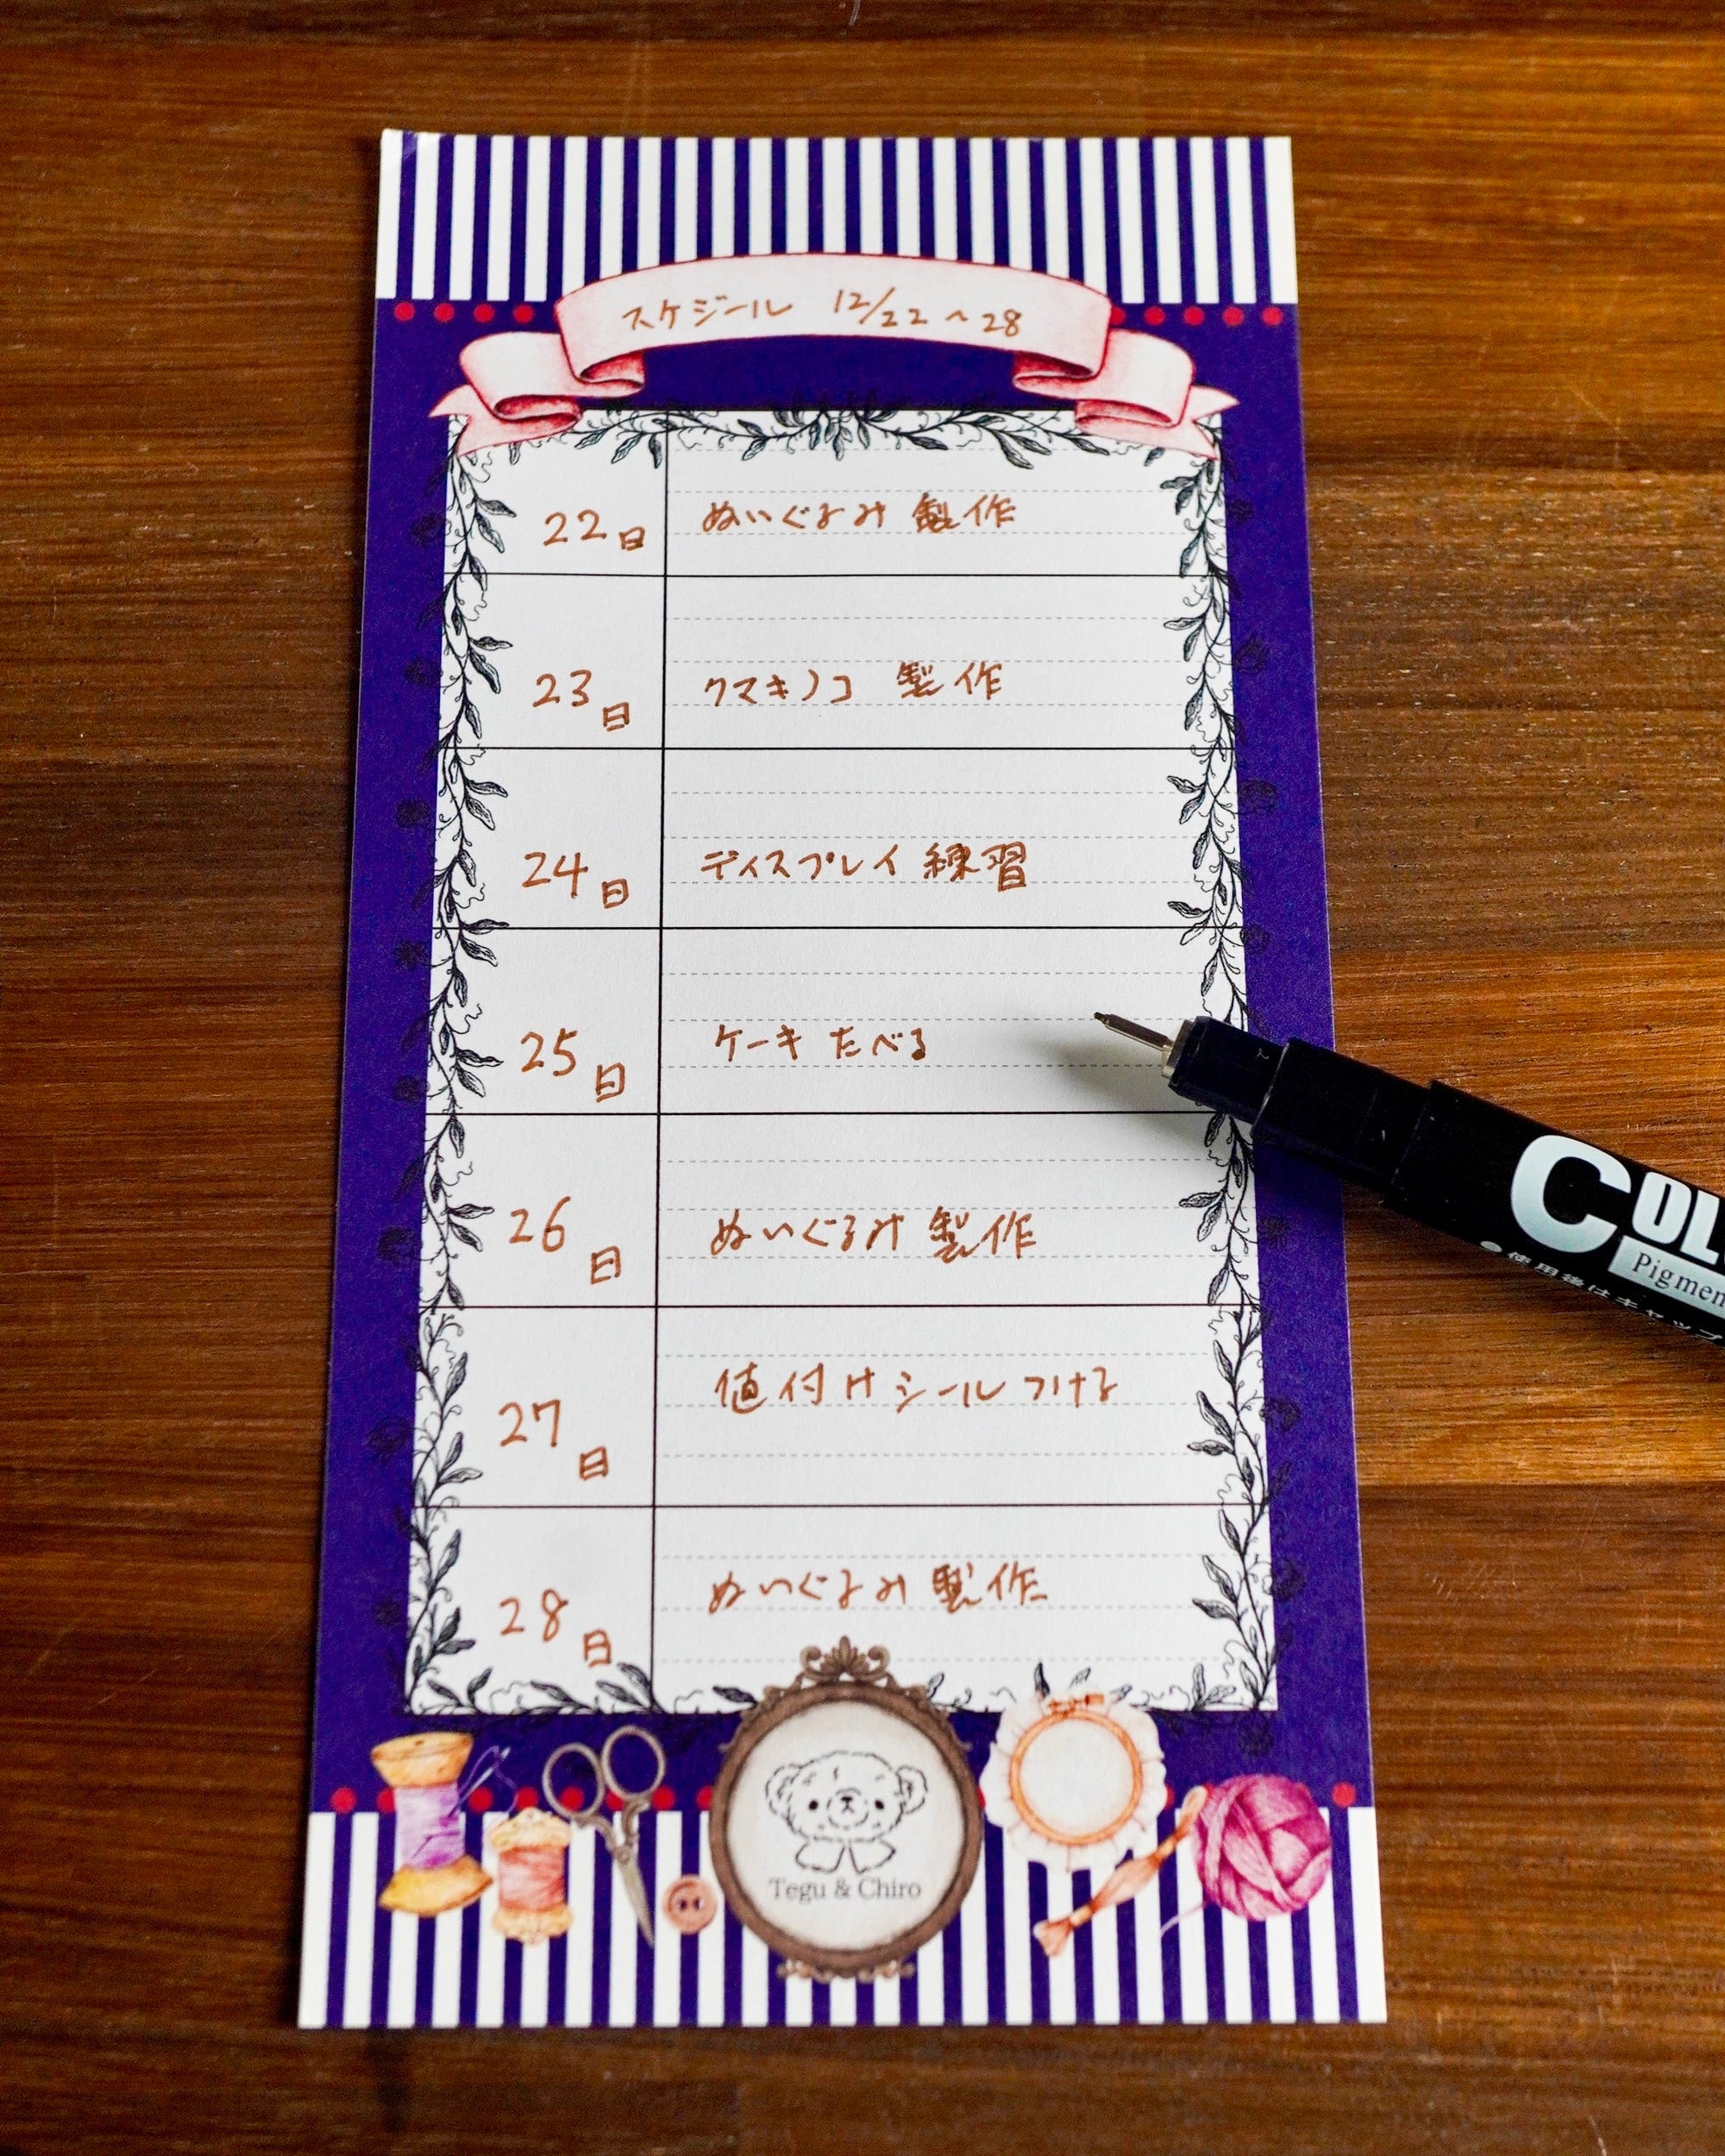 スケジール 12/22~28
22日 ぬいぐるみ 製作
23日 クマキノコ 製作
24日 ディスプレイ 練習
25日 ケーキ たべる
26日 ぬいぐるみ 製作
27日 値付けシールつける
28日 ぬいぐるみ 製作
Tegu & Chiro
COL
Pigmen
●使用後はキャップ